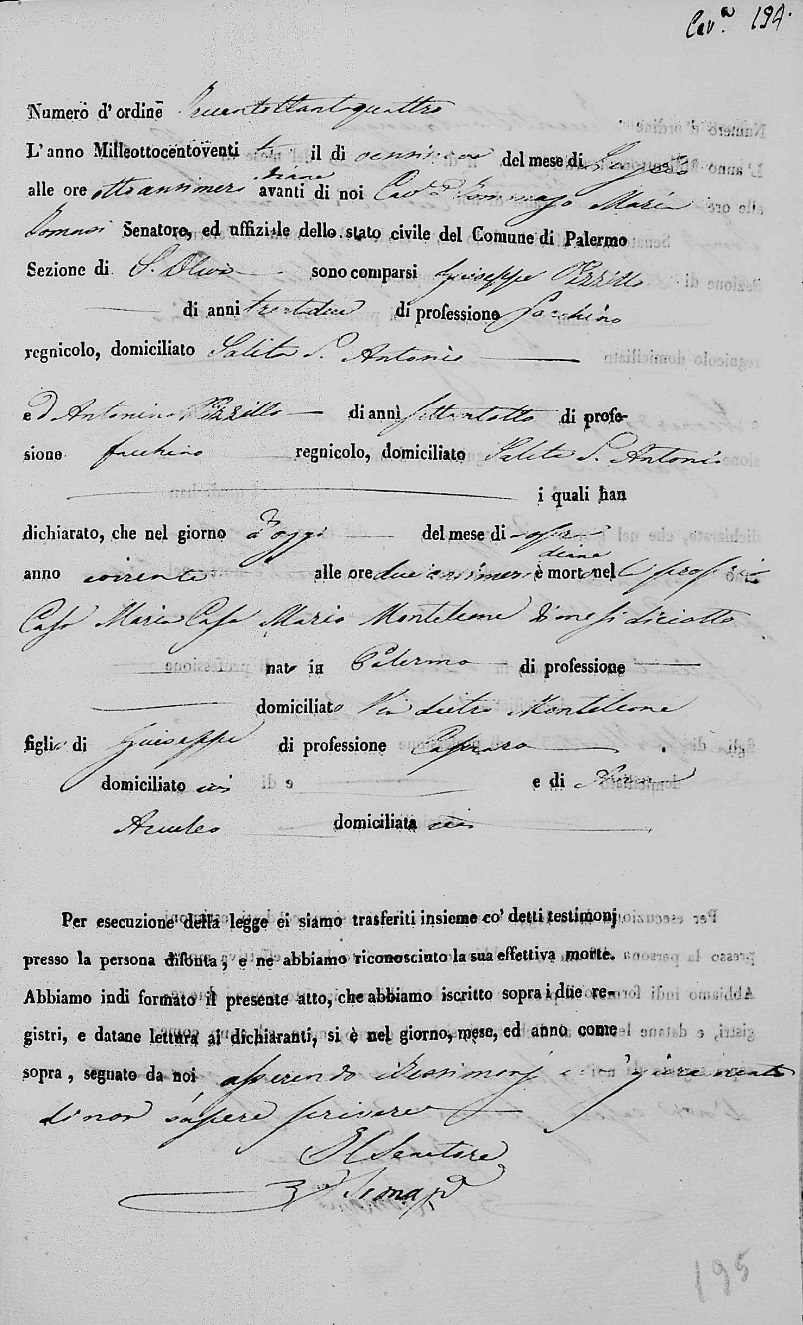 194.
Numero d'ordine
L'anno Milleottocentoventi tre il di ventinove del mese di
alle ore otto antimeridiane avanti di noi Cav. D. Tommaso Maria
Tomasi Senatore, ed uffiziale dello stato civile del Comune di Palermo
Sezione di S. Oliva sono comparsi Giuseppe
di anni trentadue di professione facchino
regnicolo, domiciliato Salita S. Antonio
ed Antonino di anni settantotto di profes-
sione facchino regnicolo, domiciliato Salita S. Antonio
i quali han
dichiarato, che nel giorno d'oggi del mese di
anno corrente alle ore due antimeridiane è morto nel
Casa Maria Casa Maria Monteleone di mesi diciotto
nat in Palermo di professione
domiciliato Via dietro Monteleone
figlia di Giuseppe di professione
domiciliato ivi e di
domiciliata ivi
Per esecuzione della legge ci siamo trasferiti insieme co' detti testimonj
presso la persona difonta, e ne abbiamo riconosciuto la sua effettiva morte.
Abbiamo indi formato il presente atto, che abbiamo iscritto sopra i due re-
gistri, e datane lettura ai dichiaranti, si è nel giorno, mese, ed anno come
sopra, segnato da noi asserendo i testimonj con giuramento
di non sapere scrivere
Il Senatore
195